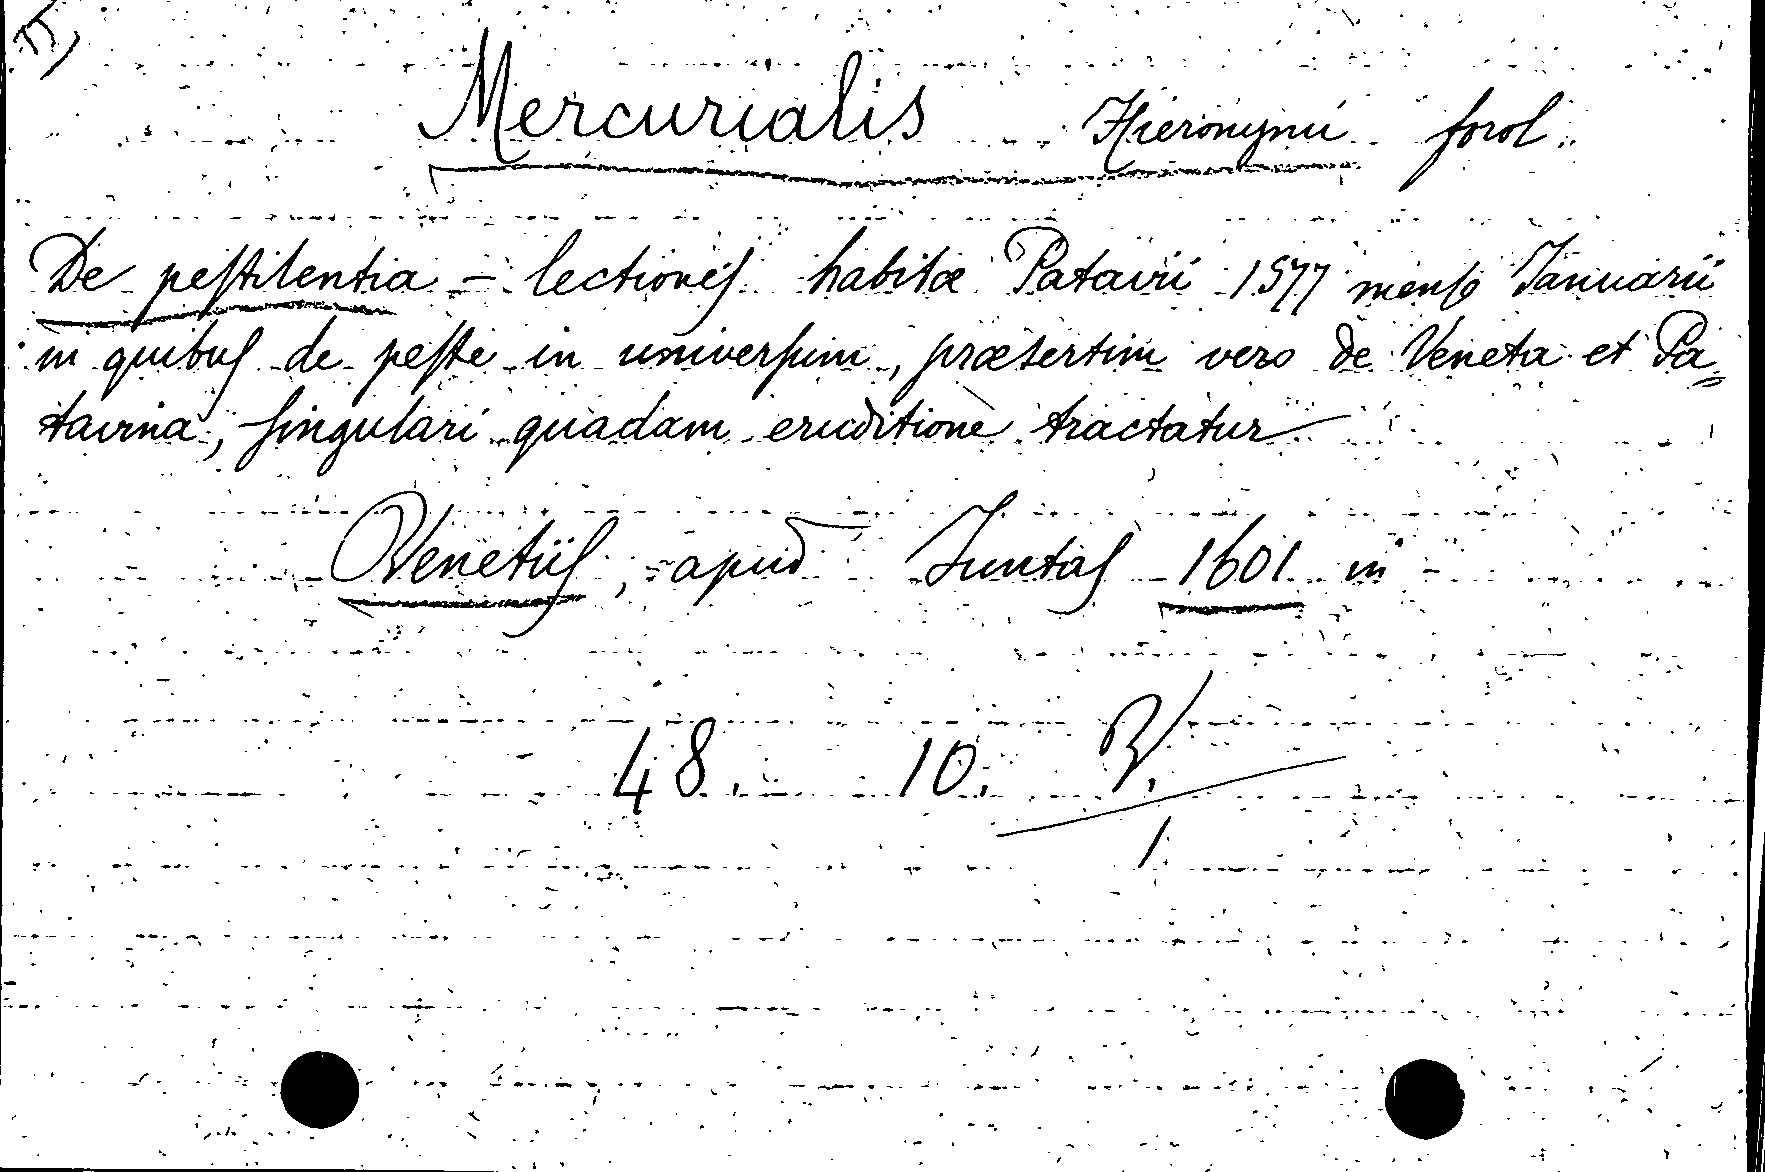 Mercurialis Hieronymi forol.
De pestilentia - lectiones habitæ Patavii 1577 mense Januarii
in quibus de peste in universum, præsertim vero de Veneta et Pa=
tavina, singulari quadam eruditione tractatur
Venetiis, apud Juntas 1601 in -
48. 10.
1